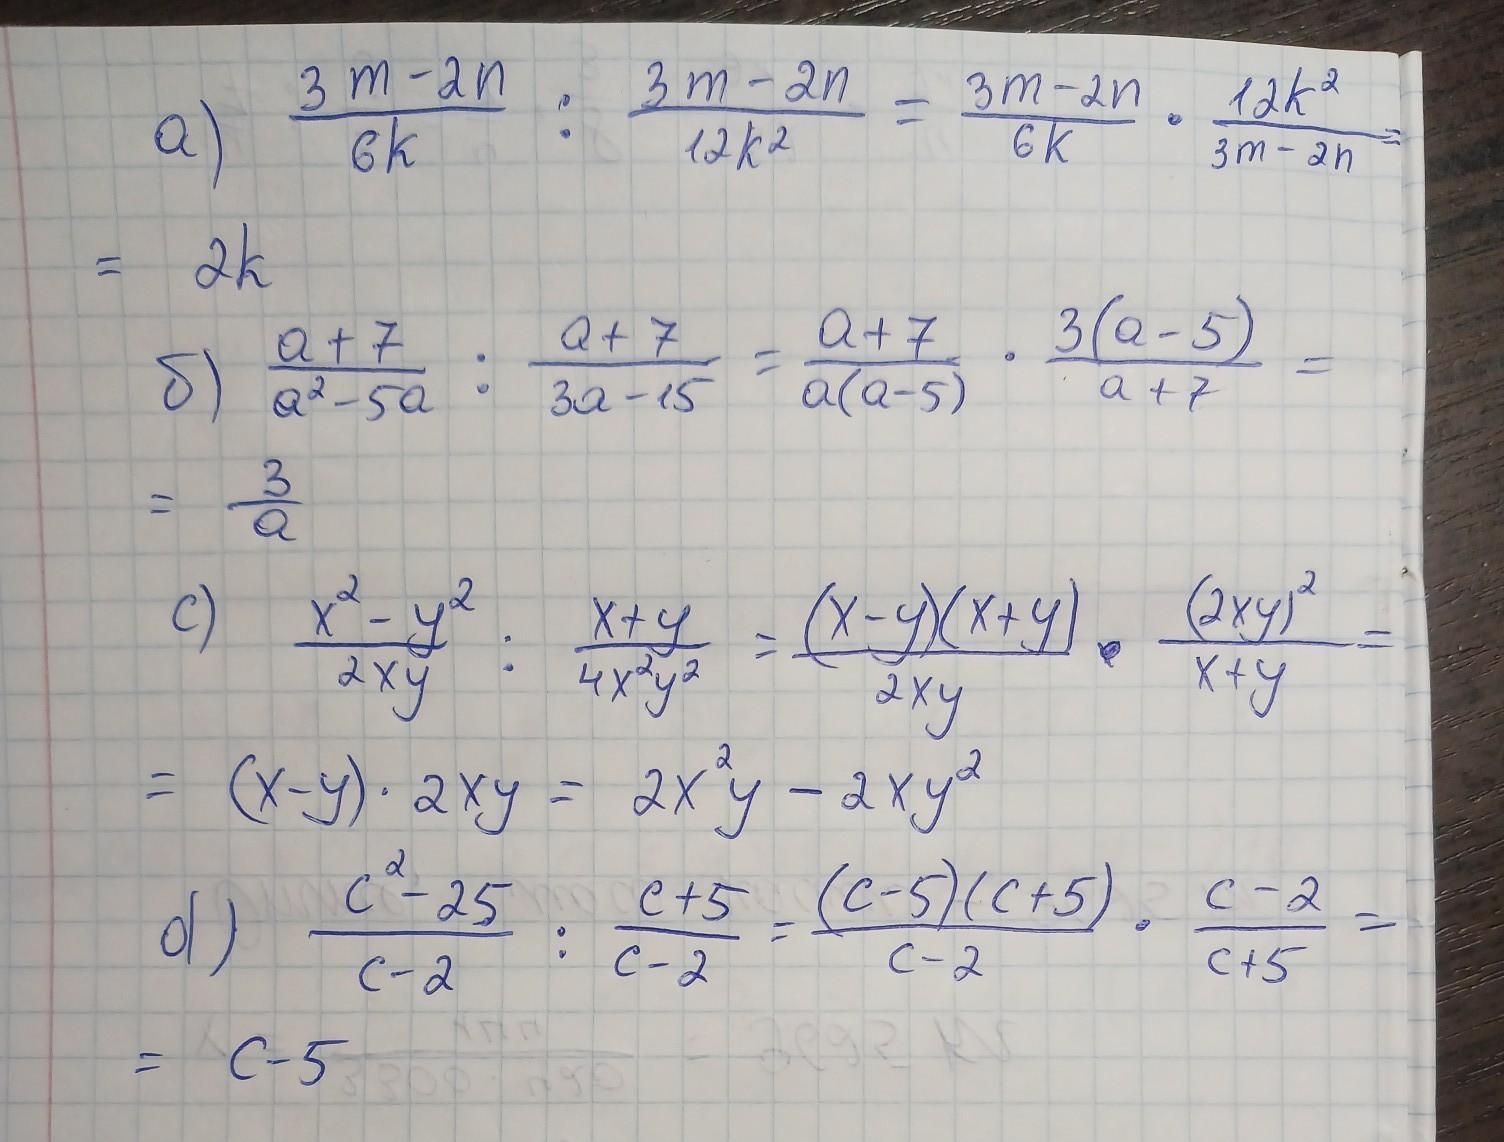 а) (3m-2n)/(6k) : (3m-2n)/(12k²) = (3m-2n)/(6k) · (12k²)/(3m-2n) =
= 2k
б) (a+7)/(a²-5a) : (a+7)/(3a-15) = (a+7)/(a(a-5)) · (3(a-5))/(a+7) =
= 3/a
c) (x²-y²)/(2xy) : (x+y)/(4x²y²) = ((x-y)(x+y))/(2xy) · (2xy)²/(x+y) =
= (x-y)·2xy = 2x²y - 2xy²
d) (c²-25)/(c-2) : (c+5)/(c-2) = ((c-5)(c+5))/(c-2) · (c-2)/(c+5) =
= c-5